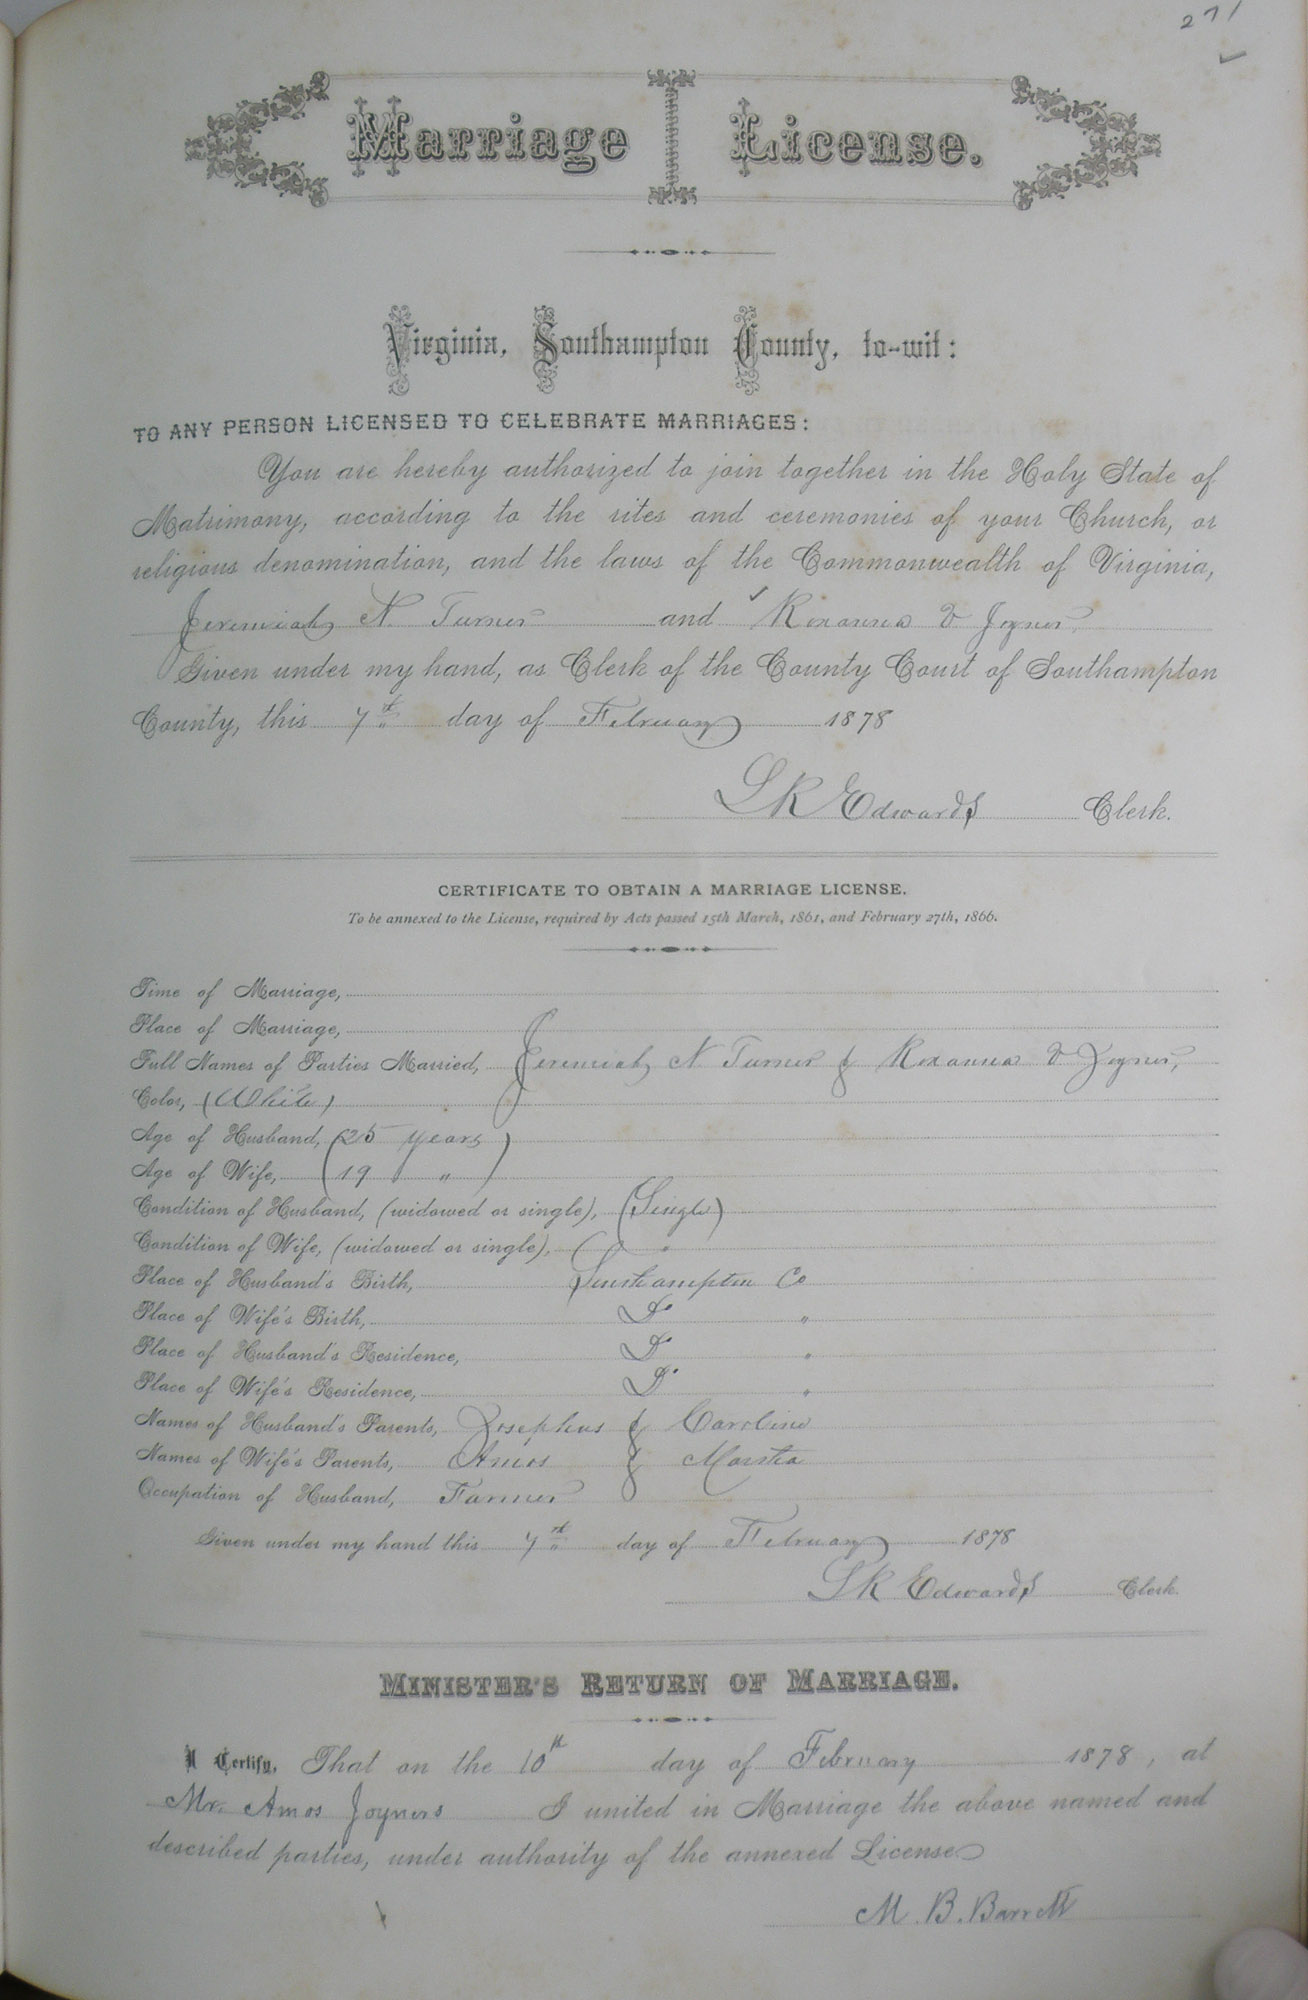 271
Marriage License.
Virginia, Southampton County, to-wit:
TO ANY PERSON LICENSED TO CELEBRATE MARRIAGES:
You are hereby authorized to join together in the Holy State of
Matrimony, according to the rites and ceremonies of your Church, or
religious denomination, and the laws of the Commonwealth of Virginia,
Jeremiah N. Turner and Roxanna V Joyner
Given under my hand, as Clerk of the County Court of Southampton
County, this 7th day of February 1878
L R Edwards Clerk.
CERTIFICATE TO OBTAIN A MARRIAGE LICENSE.
To be annexed to the License, required by Acts passed 15th March, 1861, and February 27th, 1866.
Time of Marriage,
Place of Marriage,
Full Names of Parties Married, Jeremiah N Turner & Roxanna V Joyner,
Color, (White)
Age of Husband, (25 years)
Age of Wife, (19 " )
Condition of Husband, (widowed or single), (Single)
Condition of Wife, (widowed or single), ( "
Place of Husband's Birth, Southampton Co
Place of Wife's Birth, Do "
Place of Husband's Residence, Do "
Place of Wife's Residence, Do "
Names of Husband's Parents, Josephus & Caroline
Names of Wife's Parents, Amos & Martha
Occupation of Husband, Farmer
Given under my hand this 7th day of February 1878
L R Edwards Clerk.
MINISTER'S RETURN OF MARRIAGE.
I Certify, That on the 10th day of February 1878, at
Mr. Amos Joyners I united in Marriage the above named and
described parties, under authority of the annexed License
M. B. Barrett